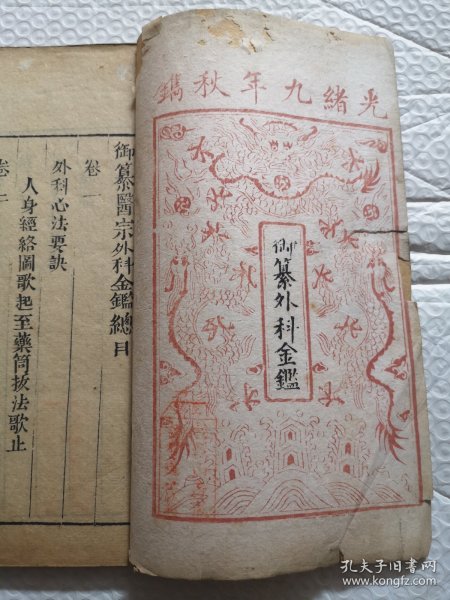 光緒九年秋鐫
御纂外科金鑑
御纂醫宗外科金鑑總目
卷一
外科心法要訣
人身經絡圖歌起至藥筒拔法歌止
卷二
孔夫子旧书网
www.kongfz.com